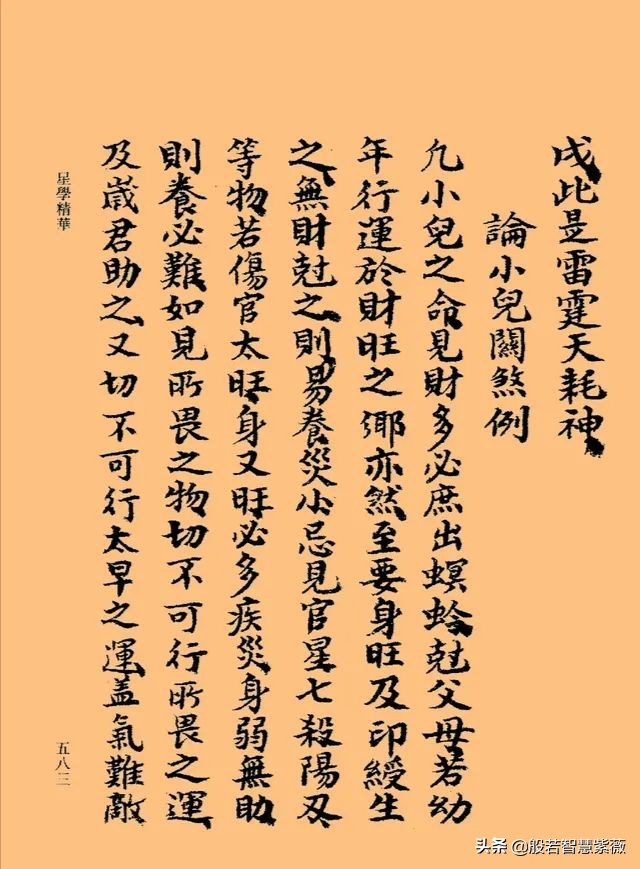 戌此是雷霆天耗神
論小兒關煞例
凢小兒之命見財多必庶出螟蛉尅父母若幼
年行運於財旺之鄉亦然至要身旺及印綬生
之無財尅之則易養災小忌見官星七殺陽刃
等物若傷官太旺身又旺必多疾災身弱無助
則養必難如見所畏之物切不可行所畏之運
及歲君助之又切不可行太早之運盖氣難敵
星學精華
五八三
头条 @般若智慧紫薇